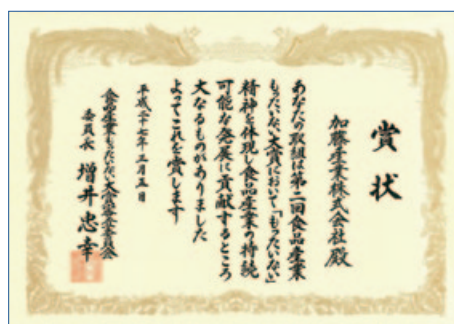 賞状
加藤産業株式会社殿
あなたの取組は第二回食品産業
もったいない大賞において「もったいない」
精神を体現し食品産業の持続
可能な発展に貢献するところ
大なるものがありました
よってこれを賞します
平成二十七年三月五日
食品産業もったいない大賞審査委員会
委員長 増井忠幸